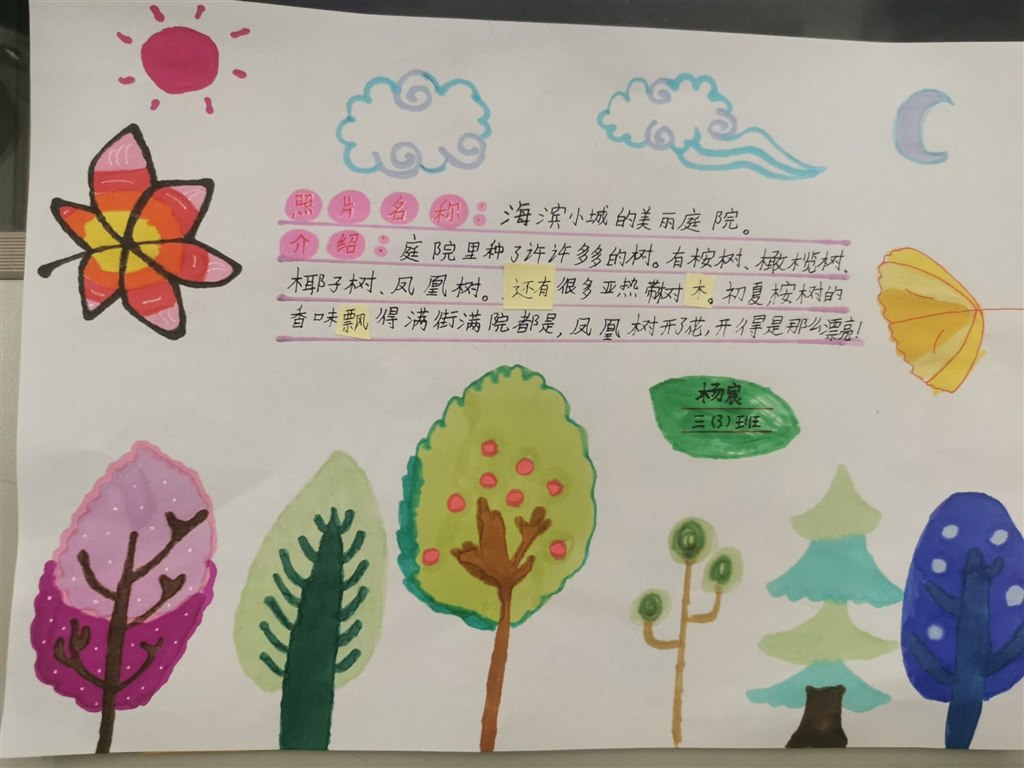 照片名称：海滨小城的美丽庭院。
介绍：庭院里种了许许多多的树。有桉树、橄榄树、
椰子树、凤凰树。还有很多亚热带树木。初夏桉树的
香味飘得满街满院都是，凤凰树开了花，开得是那么漂亮！
杨宸
三（3）班